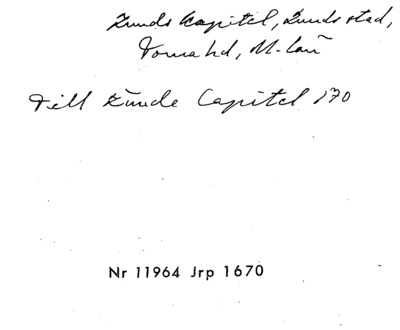 Lunds Capitel, Lunds stad,
Torna hd, M-län
Till Lunde Capitel 170
Nr 11964 Jrp 1670